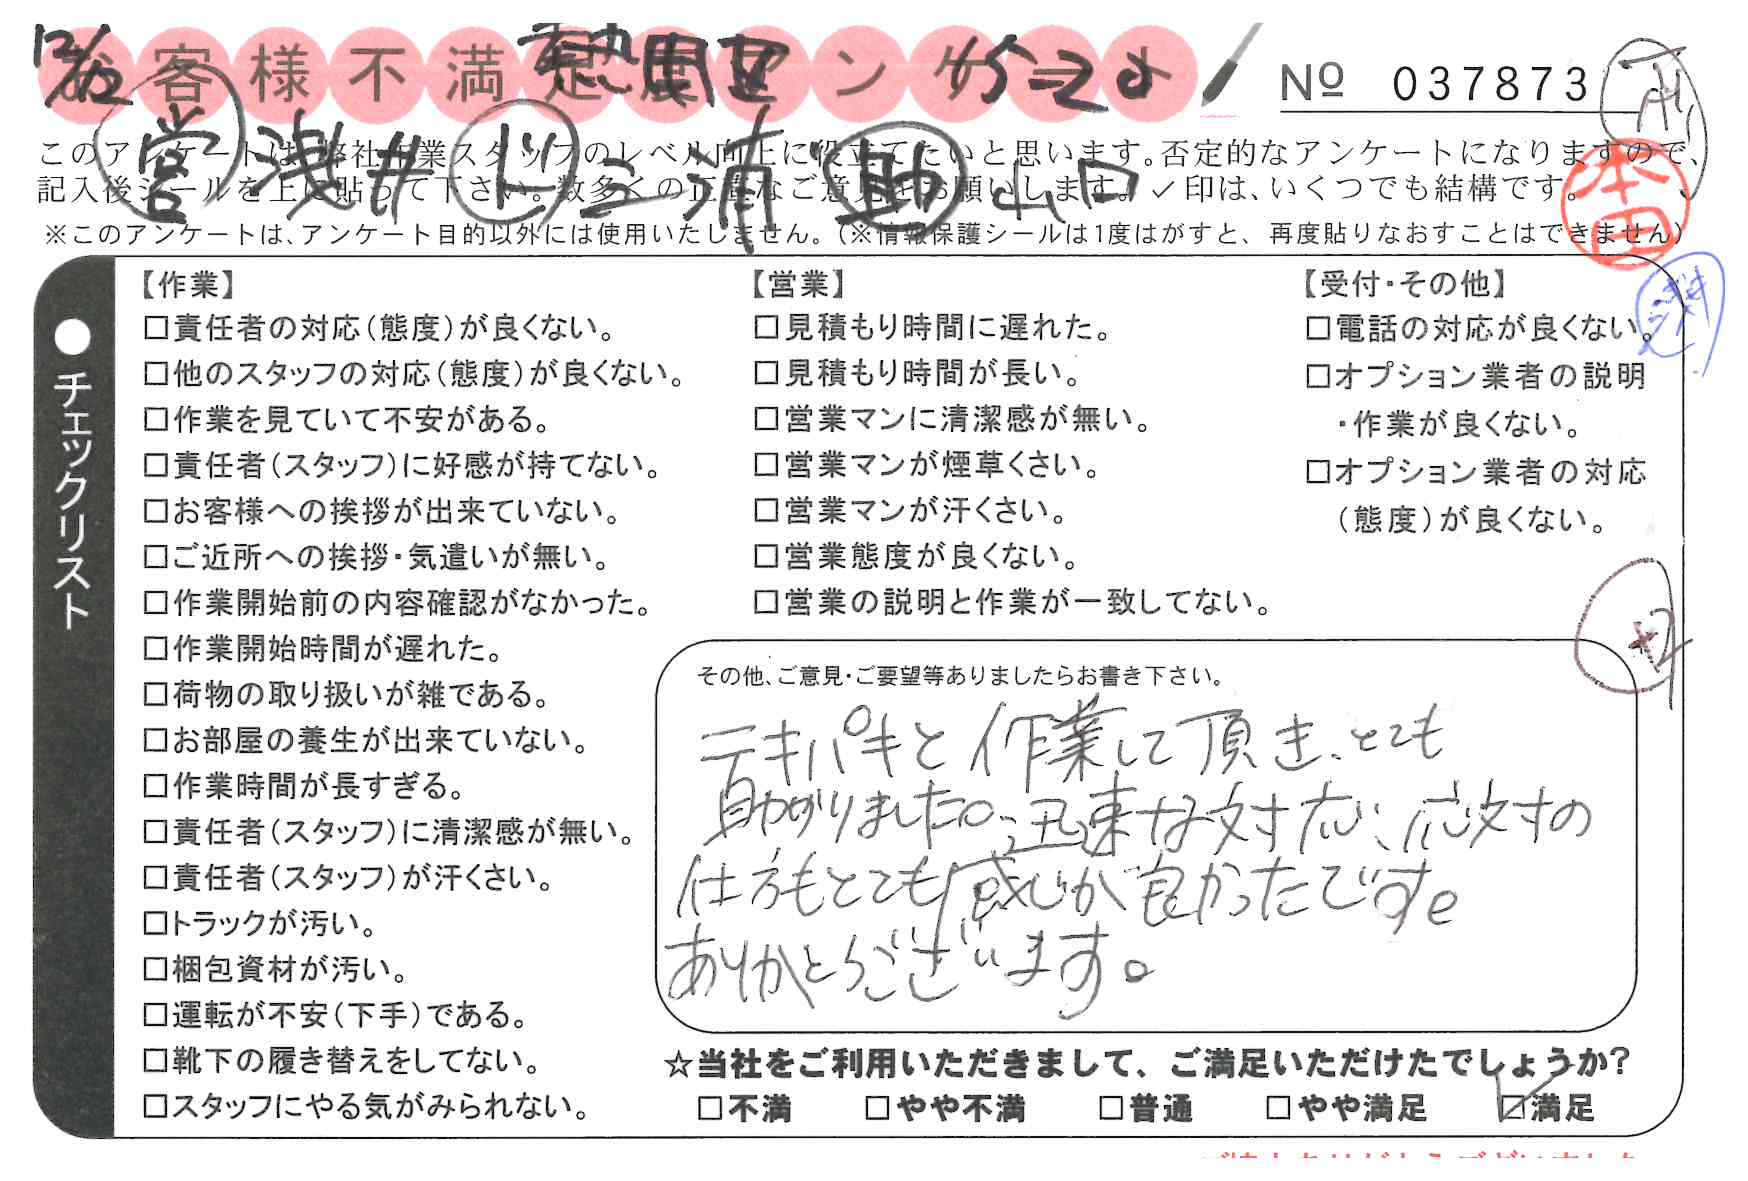 お客様不満足度アンケート
12/12
№ 037873
営 浅井 ド 三浦 助 山口
このアンケートは、弊社作業スタッフのレベル向上に役立てたいと思います。否定的なアンケートになりますので、
記入後シールを上に貼って下さい。数多くの正直なご意見をお願いします。✓印は、いくつでも結構です。
※このアンケートは、アンケート目的以外には使用いたしません。(※情報保護シールは1度はがすと、再度貼りなおすことはできません)
本田
●チェックリスト
【作業】
□責任者の対応(態度)が良くない。
□他のスタッフの対応(態度)が良くない。
□作業を見ていて不安がある。
□責任者(スタッフ)に好感が持てない。
□お客様への挨拶が出来ていない。
□ご近所への挨拶・気遣いが無い。
□作業開始前の内容確認がなかった。
□作業開始時間が遅れた。
□荷物の取り扱いが雑である。
□お部屋の養生が出来ていない。
□作業時間が長すぎる。
□責任者(スタッフ)に清潔感が無い。
□責任者(スタッフ)が汗くさい。
□トラックが汚い。
□梱包資材が汚い。
□運転が不安(下手)である。
□靴下の履き替えをしてない。
□スタッフにやる気がみられない。
【営業】
□見積もり時間に遅れた。
□見積もり時間が長い。
□営業マンに清潔感が無い。
□営業マンが煙草くさい。
□営業マンが汗くさい。
□営業態度が良くない。
□営業の説明と作業が一致してない。
【受付・その他】
□電話の対応が良くない。
□オプション業者の説明
・作業が良くない。
□オプション業者の対応
(態度)が良くない。
+2
その他、ご意見・ご要望等ありましたらお書き下さい。
テキパキと作業して頂き、とても
助かりました。迅速な対応、応対の
仕方もとても感じが良かったです。
ありがとうございます。
☆当社をご利用いただきまして、ご満足いただけたでしょうか?
□不満 □やや不満 □普通 □やや満足 ☑満足